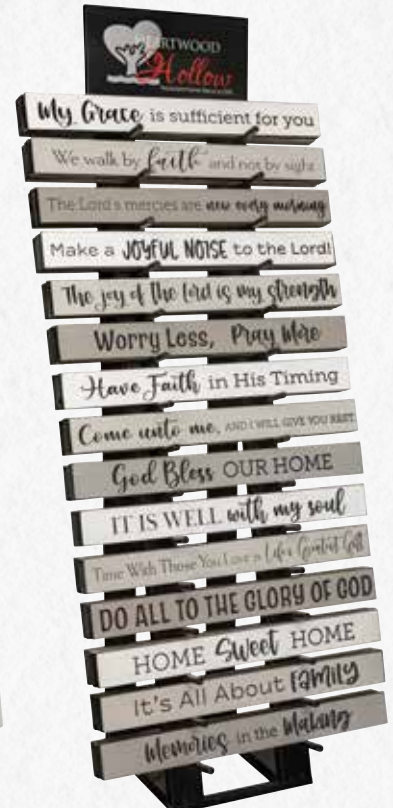 HEARTWOOD
Hollow
My Grace is sufficient for you
We walk by faith and not by sight
The Lord's mercies are new every morning
Make a JOYFUL NOISE to the Lord!
The joy of the Lord is my strength
Worry Less, Pray More
Have Faith in His Timing
Come unto me, AND I WILL GIVE YOU REST.
God Bless OUR HOME
IT IS WELL with my soul
Time With Those You Love is Life's Greatest Gift
DO ALL TO THE GLORY OF GOD
HOME Sweet HOME
It's All About family
Memories in the Making